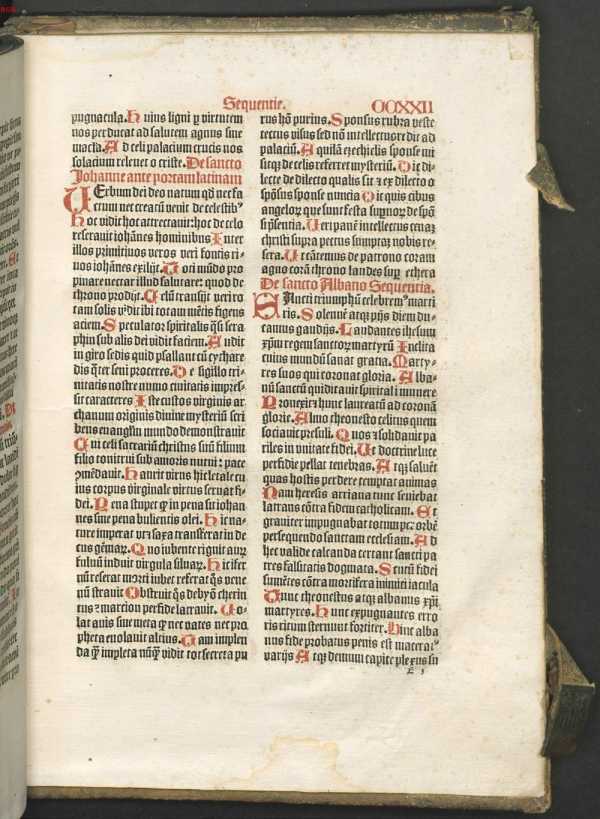 Sequentie. CCXXII
pugnacula. Huius ligni ꝑ virtutem
nos perducat ad salutem agnus sine
macła. Ad celi palacium crucis nos
solacium releuet o criste. De sancto
Johanne ante portam latinam
Uerbum dei deo natum qd nec fa
ctum nec creatū uenit de celestibꝰ
Hoc vidit hoc attrectauit: hoc de celo
reserauit iohānes hominibus Inter
illos primitiuos veros veri fontis ri⸗
uos iohānes exilijt. Toti mūdo pro
pinare nectar illud salutare: quod de
throno prodijt. Celū transijt veri ro
tam solis vidit ibi totam mētis figens
aciem. Speculator spiritalis q̄si sera
phin sub alis dei vidit faciem. Audit
in giro sedis quid psallant cū cythare
dis q̄ter seni proceres. De sigillo tri⸗
nitatis nostre numo ciuitatis impres⸗
sit caracteres Iste custos virginis ar
chanum originis diuine mysteriū scri
bens euangliū mundo demonstrauit
Cui celi sacrariū christus suū filium
filio tonitrui sub amoris mutui: pace
ꝯmēdauit. Haurit virus hic letale cu
ius corpus virginale virtus seruat fi⸗
dei. Pena stupet ꝙ in pena sit iohan
nes sine pena bulientis olei. Hic na⸗
ture imperat vt ⁊ saxa trāsferat in de
cus gēmaꝝ. Quo iubente rignit auꝝ
fuluū induit virgula siluaꝝ. Hic ifer
nū reserat morti iubet referat q̄s vene
nū strauit Obstruit q̄s ebyō cherin
tus ⁊ marcion perfide latrauit. Uo⸗
lat auis sine meta ꝙ nec vates nec pro
pheta euolauit altius. Tam implen
da ꝙ̄ impleta nūꝙ̄ vidit tot secreta pu
rus hō purius. Sponsus rubra veste
tectus visus sed nō intellectus redit ad
palaciū. Aquilā ezechielis sponse mi
sit que de celis referret mysteriū. Dic di⸗
lecte de dilecto qualis sit ⁊ ex dilecto
spōsus sponse nuncia Dic quis cibus
angeloꝝ que sunt festa supnoꝝ de spō
si p̄sentia. Ueri panē intellectus cenaꝫ
christi supra pectus sumptaꝫ nobis re⸗
sera. Ut cātemus de patrono coram
agno corā throno laudes suꝑ ethera
De sancto Albano Sequentia.
Sancti triumphū celebremꝰ marti
ris. Solennē atqꝫ pijs diem du⸗
camus gaudijs. Laudantes ihesum
xp̄m regem sanctorꝫ martyrū Inclita
cuius mundū sanat gratia. Marty⸗
res suos qui coronat gloria. Alba⸗
nū sanctū qui ditauit spiritali munere
Prouexit ⁊ hunc laureatū ad coronā
glorie. Almo theonesto celitus quem
sociauit presuli. Quos ⁊ sohdauit pa
riles in vnitate fidei. Ut doctrine luce
perfidie pellat tenebras. Atqꝫ saluet
quas hostis perdere temptat animas
Nam heresis arriana tunc seuiebat
latrans cōtra fidem catholicam. Et
grauiter impugnabat totum ꝑ orbē
persequendo sanctam ecclesiam. Ad
hec valide calcanda certant sancti pa
tres falsitatis dogmata. Scutū fidei
sumētes cōtra mortifera inimici iacula
Tunc theonestus atqꝫ albanus xp̄i
martyres. Hunc expugnantes erro
ris ritum sternunt fortiter. Hinc alba
nus fide probatus penis est maceraꝰ
varijs Atqꝫ demum capite plexus in
E 3